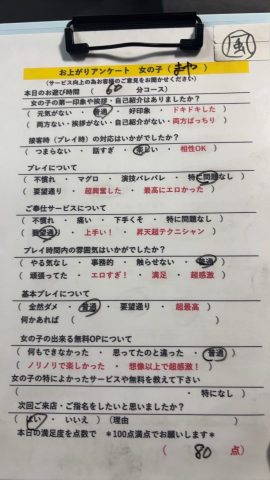 風
お上がりアンケート 女の子( まや )
(サービス向上の為お客様のご意見をお聞かせください)
本日のお遊び時間 ( 60 分コース)
女の子の第一印象や挨拶・自己紹介はありましたか?
( 元気がない ・ 普通 ・ 好印象 ・ ドキドキした )
( 両方ない・挨拶がない・自己紹介がない・両方ばっちり )
接客時(プレイ時)の対応はいかがでしたか?
( つまらない ・ 話すぎ ・ 楽しい ・ 相性OK )
プレイについて
( 不慣れ ・ マグロ ・ 演技バレバレ ・ 特に問題なし )
( 要望通り ・ 超興奮した ・ 最高にエロかった )
ご奉仕サービスについて
( 不慣れ ・ 痛い ・ 下手くそ ・ 特に問題なし )
( 要望通り ・ 上手い! ・ 昇天超テクニシャン )
プレイ時間内の雰囲気はいかがでしたか?
( やる気なし ・ 事務的 ・ 触らせない ・ 普通 )
( 頑張ってた ・ エロすぎ! ・ 満足 ・ 超感激 )
基本プレイについて
( 全然ダメ ・ 普通 ・ 要望通り ・ 超最高 )
何かあれば ( )
女の子の出来る無料OPについて
( 何もできなかった ・ 思ってたのと違った ・ 普通 )
( ノリノリで楽しかった ・ 想像以上で超感激! )
女の子の特によかったサービスや無料を教えて下さい
( ・ 特になし )
次回ご来店・ご指名をしたいと思いましたか?
( はい ・ いいえ ) (理由 )
本日の満足度を点数で *100点満点でお願いします*
( 80 点)